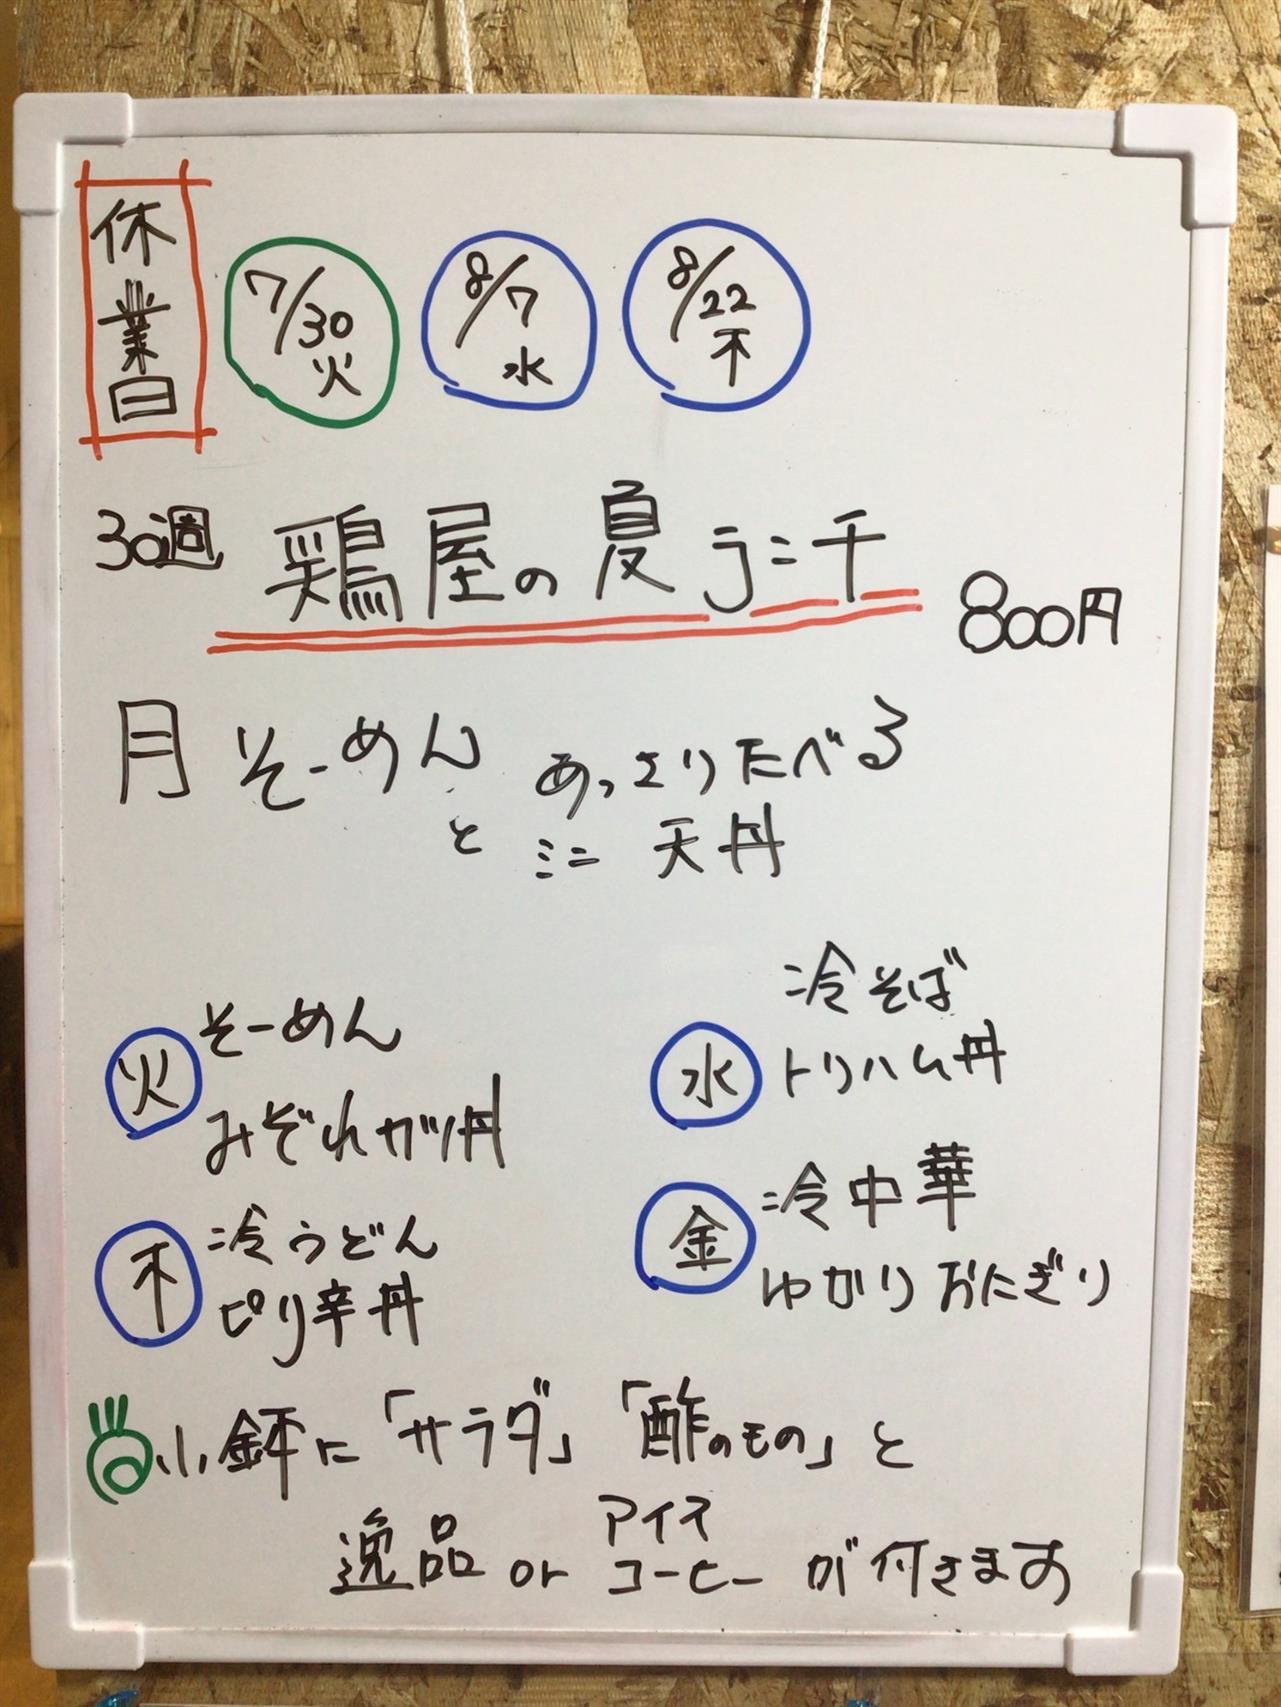 休業日
7/30 火
8/7 水
8/22 木
30週 鶏屋の夏ランチ 800円
月 そーめん あっさりたべる
と ミニ 天丼
火 そーめん
みぞれカツ丼
水 冷そば
トリハム丼
木 冷うどん
ピリ辛丼
金 冷中華
ゆかりおにぎり
小鉢に「サラダ」「酢のもの」と
逸品 or アイスコーヒー が付きます